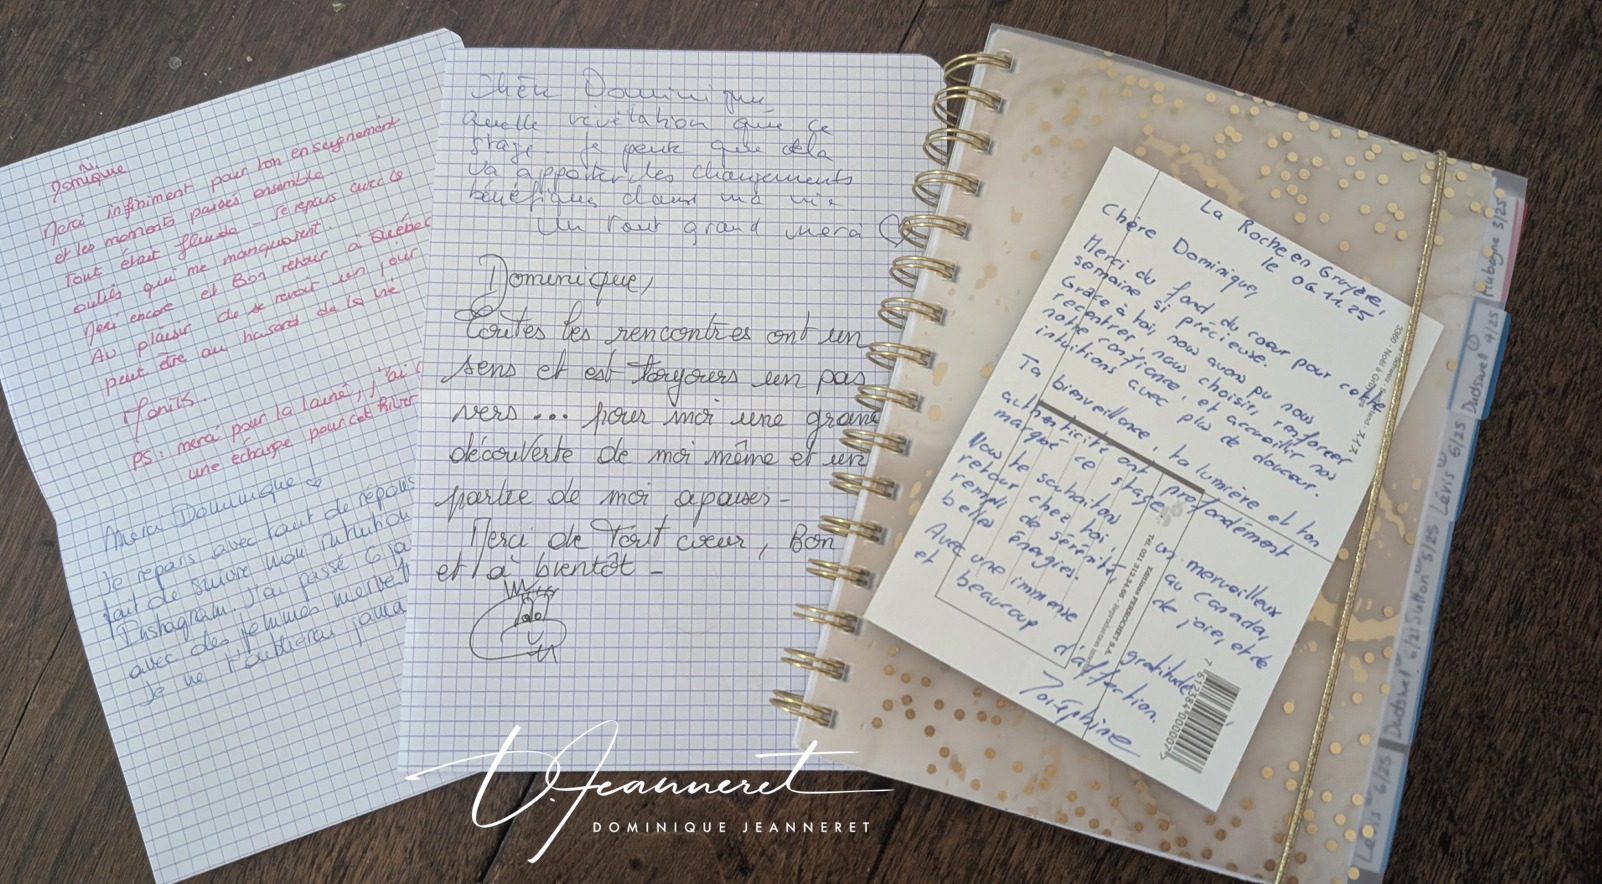 Dominique
Merci infiniment pour ton enseignement
et les moments passés ensemble.
Tout était fluide - Je repars avec les
outils qui me manquaient.
Merci encore et Bon retour à Québec
Au plaisir de se revoir un jour
peut être au hasard de la vie
PS: merci pour la laine, j'ai
une écharpe pour cet hiver
Merci Dominique
Je repars avec tant de répons
tout de suivre mon intuition
Instagram. J'ai passé 6 ja
avec des femmes merveil
Je ne t'oublierai jama
Chère Dominique
Quelle révélation que ce
stage. Je pense que cela
va apporter des changements
bénéfiques dans ma vie
Un tout grand merci ♡
Dominique,
Toutes les rencontres ont un
sens et est toujours un pas
vers ... pour moi une grande
découverte de moi même et un
partie de moi apaisée -
Merci de tout cœur, Bon
et à bientôt -
La Roche en Gruyère,
le 06.11.25
Chère Dominique,
Merci du fond du cœur pour cette
semaine si précieuse.
Grâce à toi, nous avons pu nous
recentrer, nous choisir, renforcer
notre confiance, et accueillir nos
intuitions avec plus de douceur.
Ta bienveillance, ta lumière et ton
authenticité ont profondément
marqué ce stage.
Nous te souhaitons un merveilleux
retour chez toi, au Canada,
rempli de sérénité, de joie, et de
belles énergies.
Avec une immense gratitude
et beaucoup d'affection.
Joséphine
Tél. 021 312.34.06
Edition PERROCHET S.A.
7 612384 000007
Aubagne 3/25
Dudswell ① 4/25
Lévis 6/25
Sutton 5/25
Dudswell
Lévis 6/25
D. Jeanneret
DOMINIQUE JEANNERET